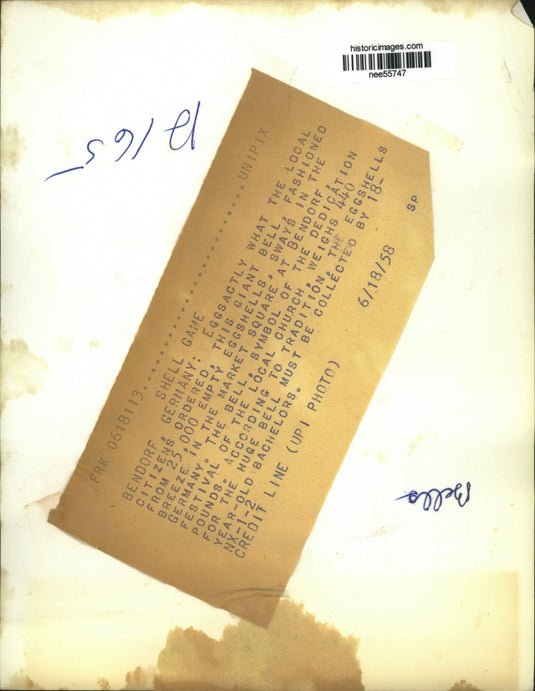 historicimages.com
nee55747
P165
FRK 0618113....................UNIPIX
SHELL GAME
BENDORF, GERMANY: EGGSACTLY WHAT THE LOCAL
CITIZENS ORDERED, THIS GIANT BELL, FASHIONED
FROM 25,000 EMPTY EGGSHELLS, SWAYS IN THE
BREEZE IN THE MARKET SQUARE AT BENDORF,
GERMANY. THE BELL, SYMBOL OF THE DEDICATION
FESTIVAL OF THE LOCAL CHURCH, WEIGHS 440
POUNDS. ACCORDING TO TRADITION, THE EGGSHELLS
FOR THE HUGE BELL MUST BE COLLECTED BY 18-
YEAR-OLD BACHELORS.
NX-1-2
CREDIT LINE (UPI PHOTO) 6/18/58 SP
Bells